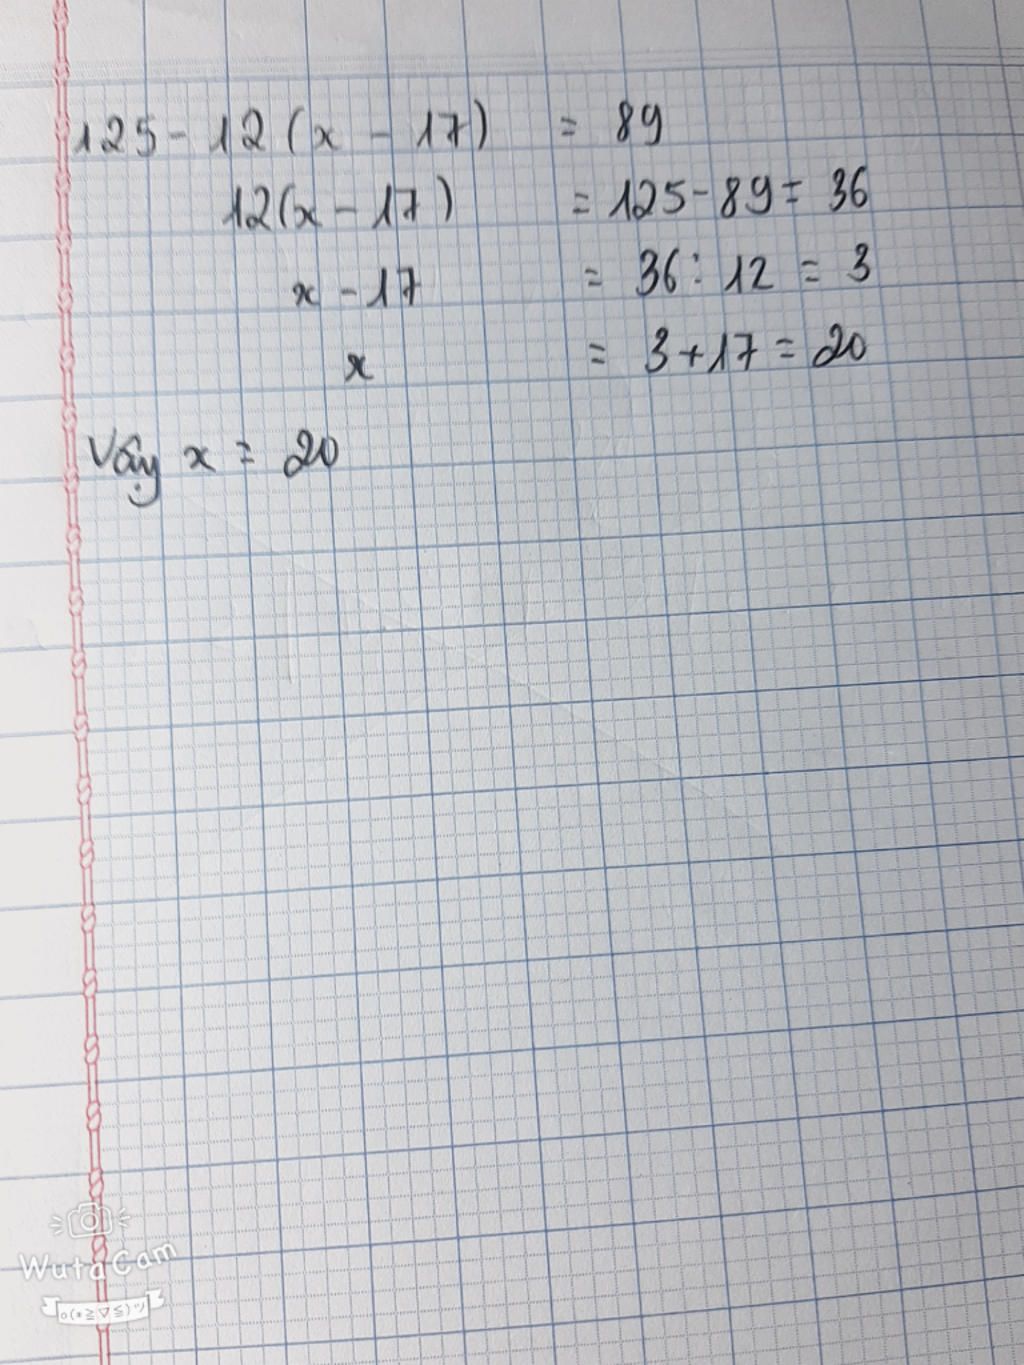 125 - 12 (x - 17) = 89
12(x - 17) = 125 - 89 = 36
x - 17 = 36 : 12 = 3
x = 3 + 17 = 20
Vậy x = 20
WutaCam
o(*≧▽≦)ツ